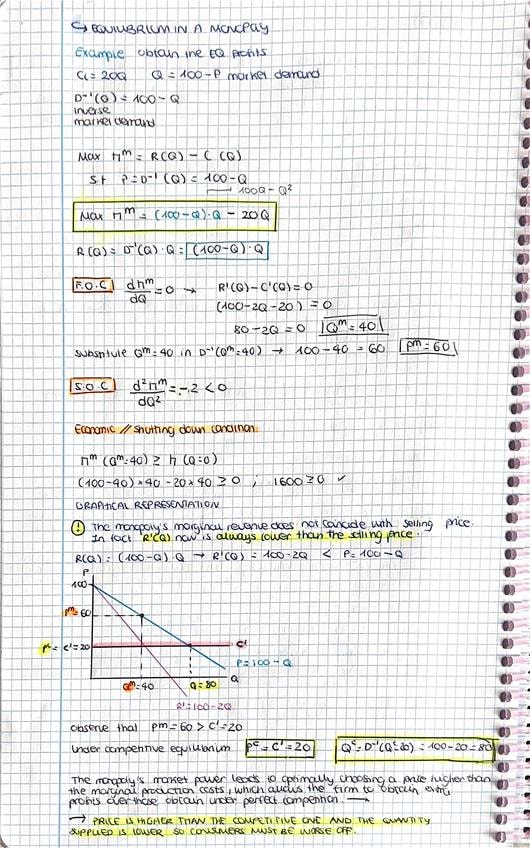 ↳ EQUILIBRIUM IN A MONOPAY
Example obtain the EQ profits
C = 20Q Q = 100-P market demand
D⁻¹(Q) = 100 - Q
inverse
market demand
Max πᵐ = R(Q) - C(Q)
s.t P = D⁻¹(Q) = 100-Q
→ 100Q - Q²
Max πᵐ = (100-Q)·Q - 20Q
R(Q) = D⁻¹(Q)·Q = (100-Q)·Q
F.O.C dπᵐ/dQ = 0 → R'(Q) - C'(Q) = 0
(100-2Q-20) = 0
80 - 2Q = 0 Qᵐ = 40
Substitute Qᵐ=40 in D⁻¹(Qᵐ=40) → 100-40 = 60 Pᵐ = 60
S.O.C d²πᵐ/dQ² = -2 < 0
Economic // shutting down condition
πᵐ (Qᵐ=40) ≥ π (Q=0)
(100-40)×40 - 20×40 ≥ 0 ; 1600 ≥ 0 ✓
GRAPHICAL REPRESENTATION
! The monopoly's marginal revenue does not coincide with selling price.
In fact R'(Q) now is always lower than the selling price.
R(Q) = (100-Q)·Q → R'(Q) = 100-2Q < P = 100-Q
P
100
Pᵐ= 60
Pᶜ = C' = 20
C'
P = 100 - Q
Q
Qᵐ=40 Q = 80
R' = 100 - 2Q
observe that Pm = 60 > C' = 20
Under competitive equilibrium Pᶜ = C' = 20 Qᶜ = D⁻¹(Qᶜ=20) = 100-20 = 80
The monopoly's market power leads to optimally choosing a price higher than
the marginal production costs, which allows the firm to obtain extra
profits over those obtain under perfect competition. →
→ PRICE IS HIGHER THAN THE COMPETITIVE ONE AND THE QUANTITY
SUPPLIED IS LOWER SO CONSUMERS MUST BE WORSE OFF.